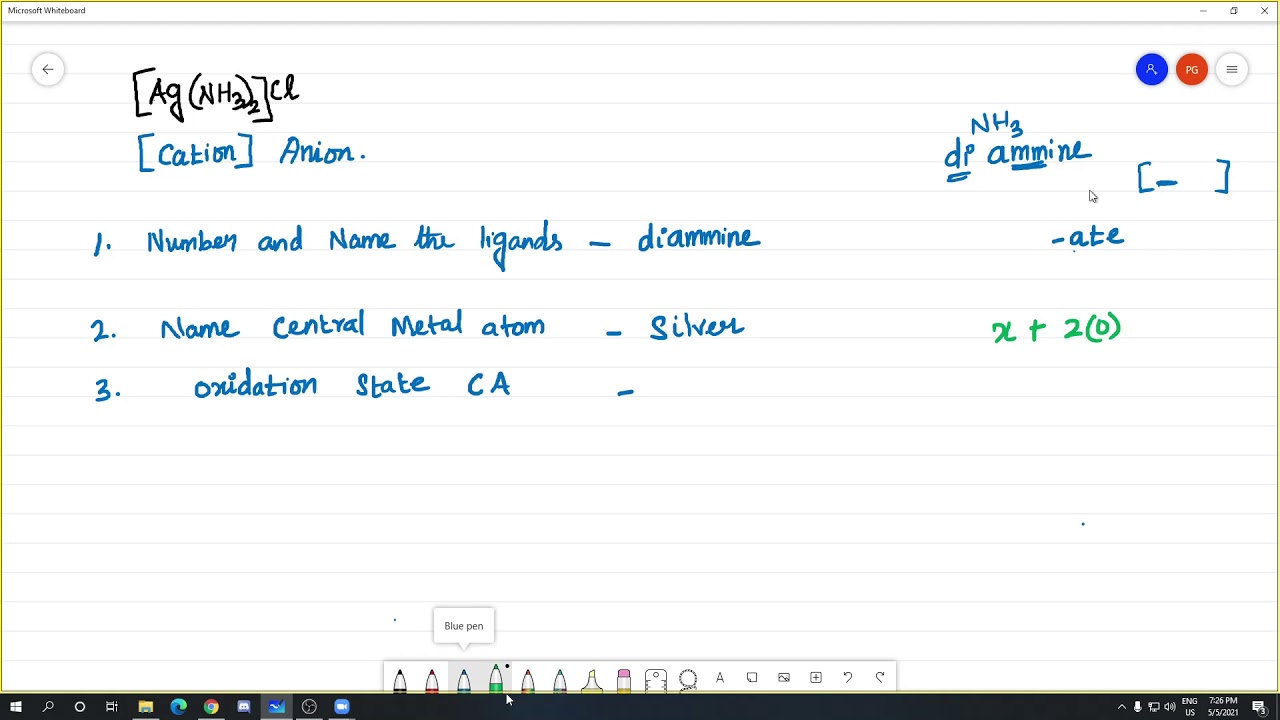 Microsoft Whiteboard
PG
[Ag(NH3)2]Cl
[Cation] Anion.
NH3
di ammine
[– ]
1. Number and Name the ligands – diammine
-ate
2. Name Central Metal atom – Silver
x + 2(0)
3. Oxidation State CA –
Blue pen
A
ENG
US
7:26 PM
5/5/2021
3